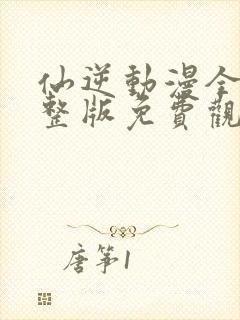 仙逆動漫全
整版免費觀
唐筝1